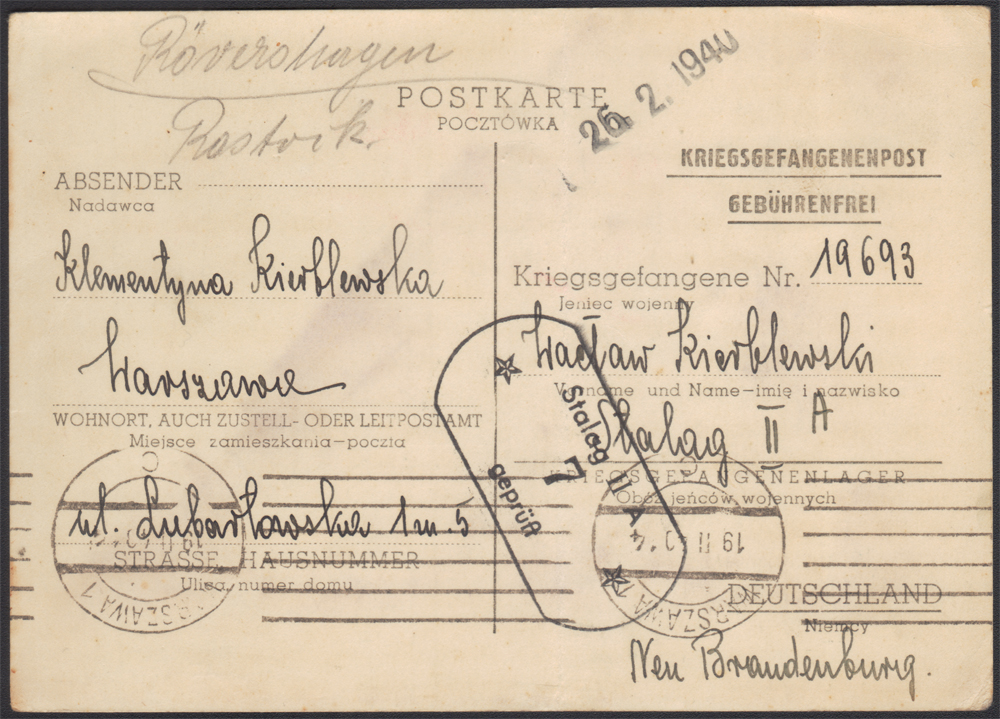 Rövershagen
Rostock.
POSTKARTE
POCZTÓWKA
26. 2. 1940
KRIEGSGEFANGENENPOST
GEBÜHRENFREI
ABSENDER
Nadawca
Klementyna Kierblewska
Warszawa
WOHNORT, AUCH ZUSTELL- ODER LEITPOSTAMT
Miejsce zamieszkania-poczta
ul. Lubartowska 1 m. 5
STRASSE HAUSNUMMER
Ulica, numer domu
Kriegsgefangene Nr. 19693
Jeniec wojenny
Wacław Kierblewski
Vorname und Name-imię i nazwisko
Stalag II A
KRIEGSGEFANGENENLAGER
Obóz jeńców wojennych
DEUTSCHLAND
Niemcy
Neu Brandenburg.
Stalag II A
geprüft
WARSZAWA 7
19 II 40
WARSZAWA 7
19 II 40